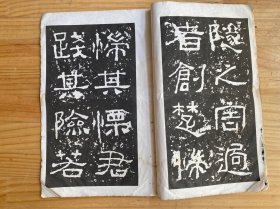 隧之害過
者創楚惴
惴其慄君
踐其險若